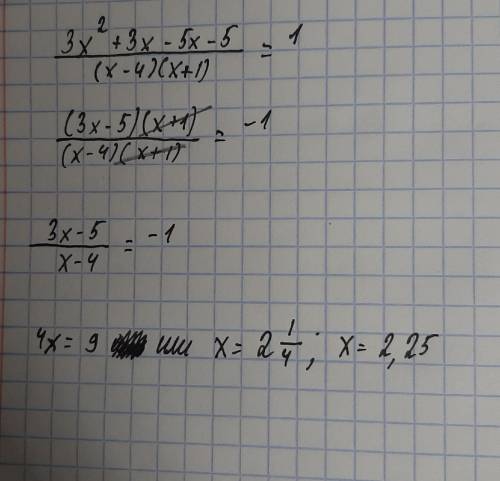 3x² + 3x - 5x - 5 / (x - 4)(x + 1) = 1
(3x - 5)(x + 1) / (x - 4)(x + 1) = -1
3x - 5 / x - 4 = -1
4x = 9 или x = 2 1/4 ; x = 2,25